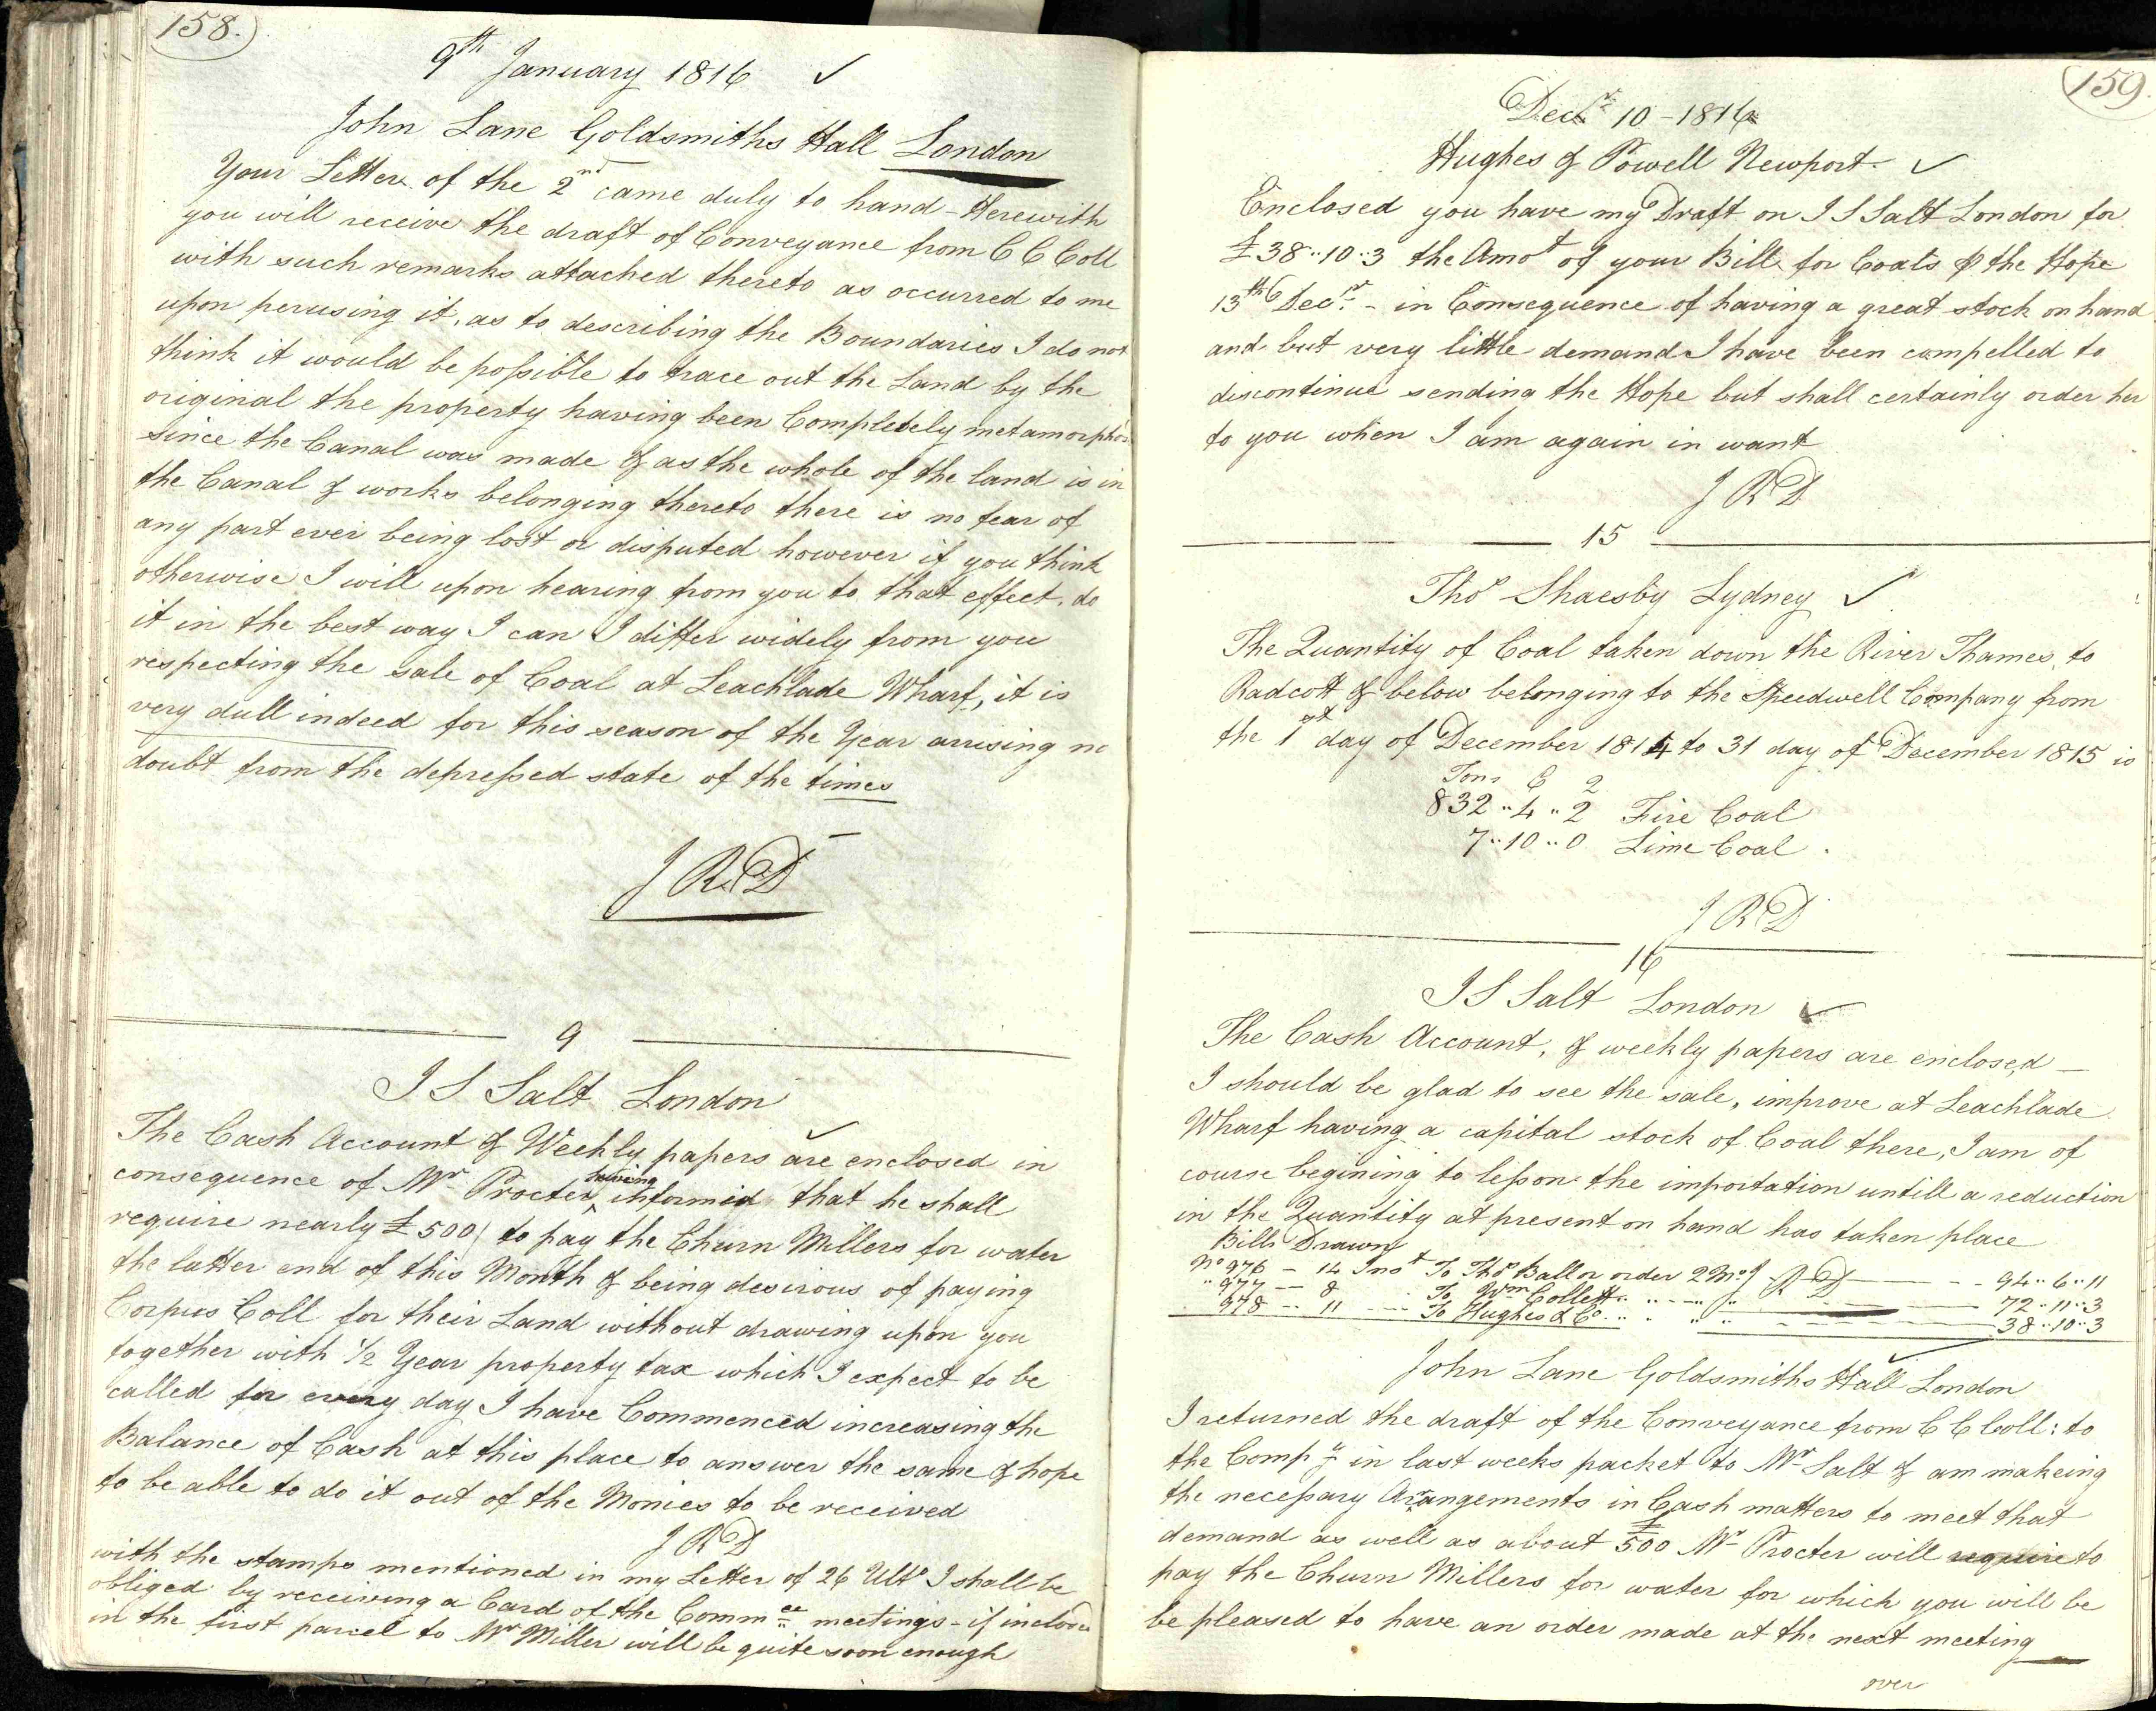 158.
9th January 1816 ✓
John Lane Goldsmiths Hall London
Your Letter of the 2nd came duly to hand - Herewith
you will receive the draft of Conveyance from C C Coll
with such remarks attached thereto as occurred to me
upon perusing it, as to describing the Boundaries I do not
think it would be possible to trace out the Land by the
original the property having been Completely metamorphos
since the Canal was made & as the whole of the land is in
the Canal & works belonging thereto there is no fear of
any part ever being lost or disputed however if you think
otherwise I will upon hearing from you to that effect, do
it in the best way I can I differ widely from you
respecting the sale of Coal at Leachlade Wharf, it is
very dull indeed for this season of the Year arrising no
doubt from the depressed state of the times
J R D
9
I S Salt London
✓
The Cash Account & Weekly papers are enclosed in
consequence of Mr Procter having informed that he shall
require nearly £500/ to pay the Churn Millers for water
the latter end of this Month & being desirous of paying
Corpus Coll for their Land without drawing upon you
together with 1/2 Year property tax which I expect to be
called for every day I have Commenced increasing the
Balance of Cash at this place to answer the same & hope
to be able to do it out of the Monies to be received
J R D
with the stamps mentioned in my Letter of 26 Ulto I shall be
obliged by receiving a Card of the Commee meetings - if inclosed
in the first parcel to Mr Miller will be quite soon enough
159.
Decr 10 - 1816
Hughes & Powell Newport ✓
Enclosed you have my Draft on I S Salt London for
£38..10..3 the Amot of your Bill for Coals P the Hope
13th Decr - in Consequence of having a great stock on hand
and but very little demand I have been compelled to
discontinue sending the Hope but shall certainly order her
to you when I am again in want
J R D
15
Thos Shaesby Lydney ✓
The Quantity of Coal taken down the River Thames to
Radcott & below belonging to the Speedwell Company from
the 1st day of December 1814 to 31 day of December 1815 is
Tons C Q
832..4..2 Fire Coal
7..10..0 Lime Coal.
J R D
16
I S Salt London ✓
The Cash Account, & weekly papers are enclosed —
I should be glad to see the sale, improve at Leachlade
Wharf having a capital stock of Coal there, I am of
course begining to lesson the importation untill a reduction
in the Quantity at present on hand has taken place
Bills Drawn
No 976 - 14 Inst To Thos Ball or order 2 Mo J R D - 94..6..11
" 977 - 8 To Wm Collett " " 72..11..3
978 - 11 To Hughes & Co " " 38..10..3
John Lane Goldsmiths Hall London ✓
I returned the draft of the Conveyance from C C Coll: to
the Compy in last weeks packet to Mr Salt & am makeing
the necessary Arrangements in Cash matters to meet that
demand as well as about £500 Mr Procter will require to
pay the Churn Millers for water for which you will be
be pleased to have an order made at the next meeting
over